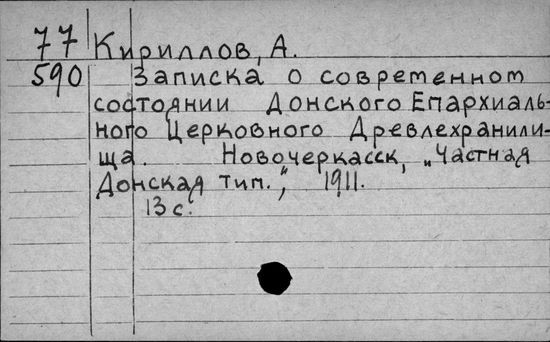 77 Кириллов, А.
590 Записка о современном
состоянии Донского Епархиаль-
ного Церковного Древлехранили-
ща. Новочеркасск, „Частная
Донская тип.“, 1911.
13 с.